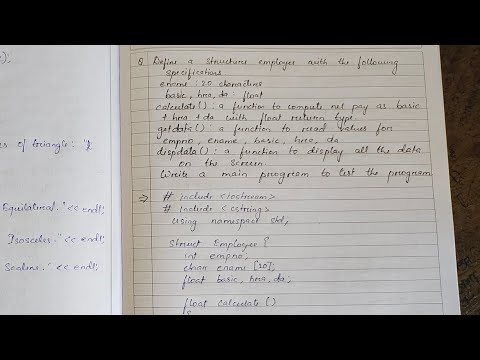 );
es of triangle: "
Equilateral" << endl;
Isosceles" << endl;
Scalene" << endl;
Q Define a structure employee with the following
specifications.
ename : 20 characters
basic, hra, da : float
calculate() : a function to compute net pay as basic
+ hra + da with float return type.
getdata() : a function to read values for
empno, ename, basic, hra, da
dispdata() : a function to display all the data
on the screen
Write a main program to test the program
⇒ # include <iostream>
# include <cstring>
using namespace std;
Struct Employee {
int empno;
char ename [20];
float basic, hra, da;
float calculate ()
{